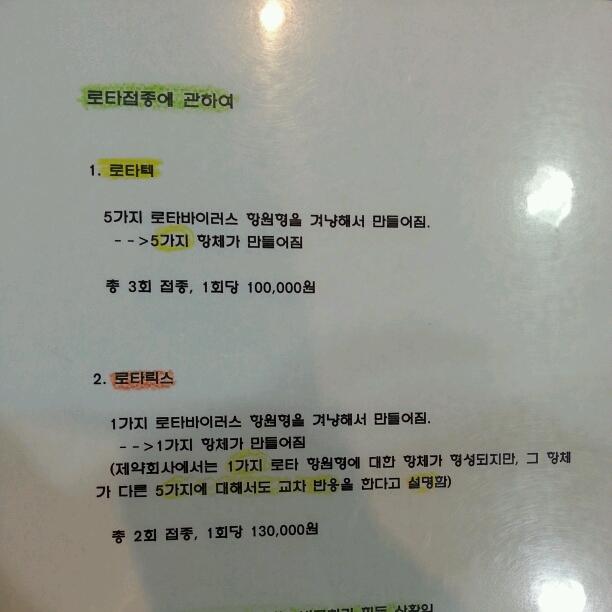 로타접종에 관하여
1. 로타텍
5가지 로타바이러스 항원형을 겨냥해서 만들어짐.
-->5가지 항체가 만들어짐
총 3회 접종, 1회당 100,000원
2. 로타릭스
1가지 로타바이러스 항원형을 겨냥해서 만들어짐.
-->1가지 항체가 만들어짐
(제약회사에서는 1가지 로타 항원형에 대한 항체가 형성되지만, 그 항체
가 다른 5가지에 대해서도 교차 반응을 한다고 설명함)
총 2회 접종, 1회당 130,000원
상황입